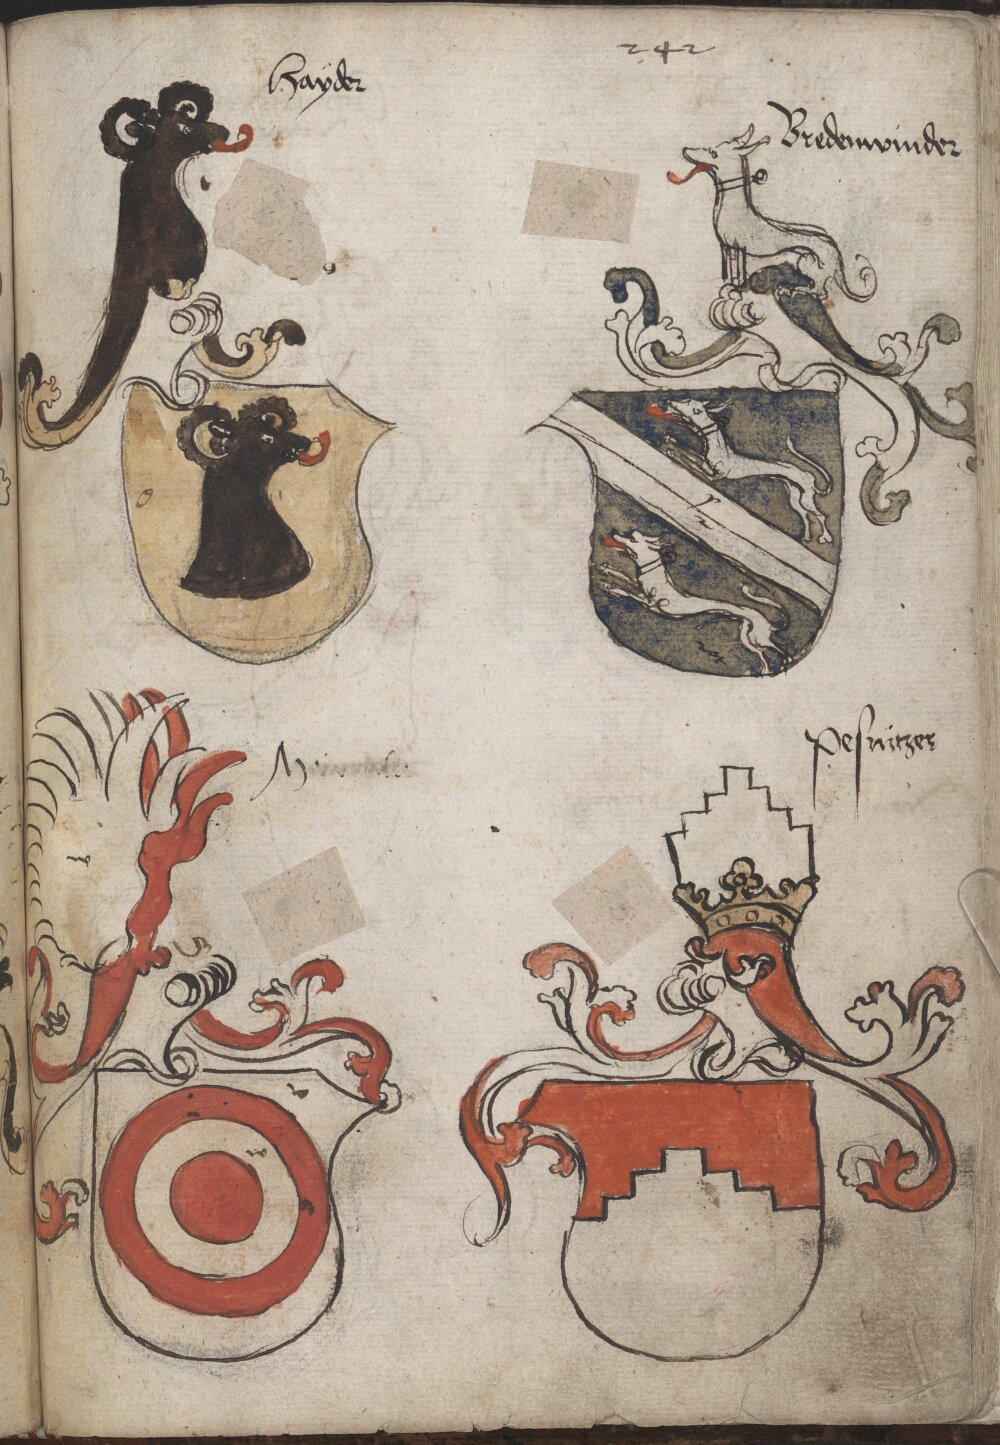 242
Hayder
Bredenwinder
Pesnitzer